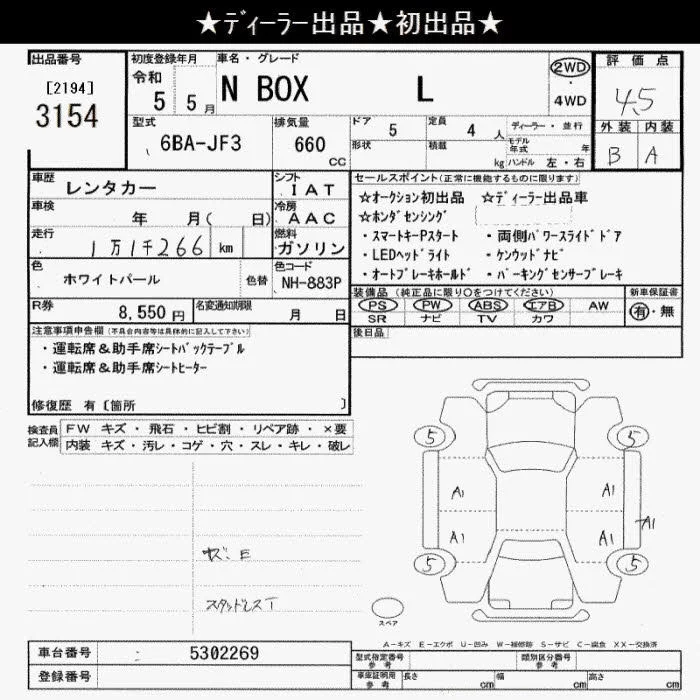 ★ディーラー出品★初出品★
出品番号
[2194]
3154
初度登録年月
令和
5 5月
車名・グレード
N BOX L
2WD
・
4WD
評価点
4.5
外装 内装
B A
型式
6BA-JF3
排気量
660
CC
ドア
5
定員
4人
形状
積載
kg
ディーラー・並行
モデル年式 年
ハンドル 左・右
車歴
レンタカー
シフト
IAT
車検
年 月( 日)
冷房
AAC
走行
1万1千266km
燃料
ガソリン
色
ホワイトパール
色替
色コード
NH-883P
R券
8,550円
名変通知期限
月 日
セールスポイント(正常に機能するものに限ります)
☆オークション初出品 ☆ディーラー出品車
☆ホンダセンシング
・スマートキーPスタート ・両側パワースライドドア
・LEDヘッドライト ・ケンウッドナビ
・オートブレーキホールド ・パーキングセンサーブレーキ
装備品(純正品に限り〇をつけてください)
PS PW ABS エアB AW
SR ナビ TV カワ
新車保証書
有・無
後日品
注意事項申告欄(不具合内容等は具体的に記入して下さい)
・運転席&助手席シートバックテーブル
・運転席&助手席シートヒーター
修復歴 有〔箇所 〕
検査員
記入欄
FW キズ・飛石・ヒビ割・リペア跡・×要
内装 キズ・汚レ・コゲ・穴・スレ・キレ・破レ
キズ・E
スタッドレスT
5
5
A1
A1
A1
A1
A1
5
5
スペア
A-キズ E-エクボ U-凹み W-補修跡 S-サビ C-腐食 XX-交換済
車台番号
5302269
登録番号
型式指定番号
参考
類別区分番号
参考
車庫証明用
参考
長さ cm
幅 cm
高さ cm